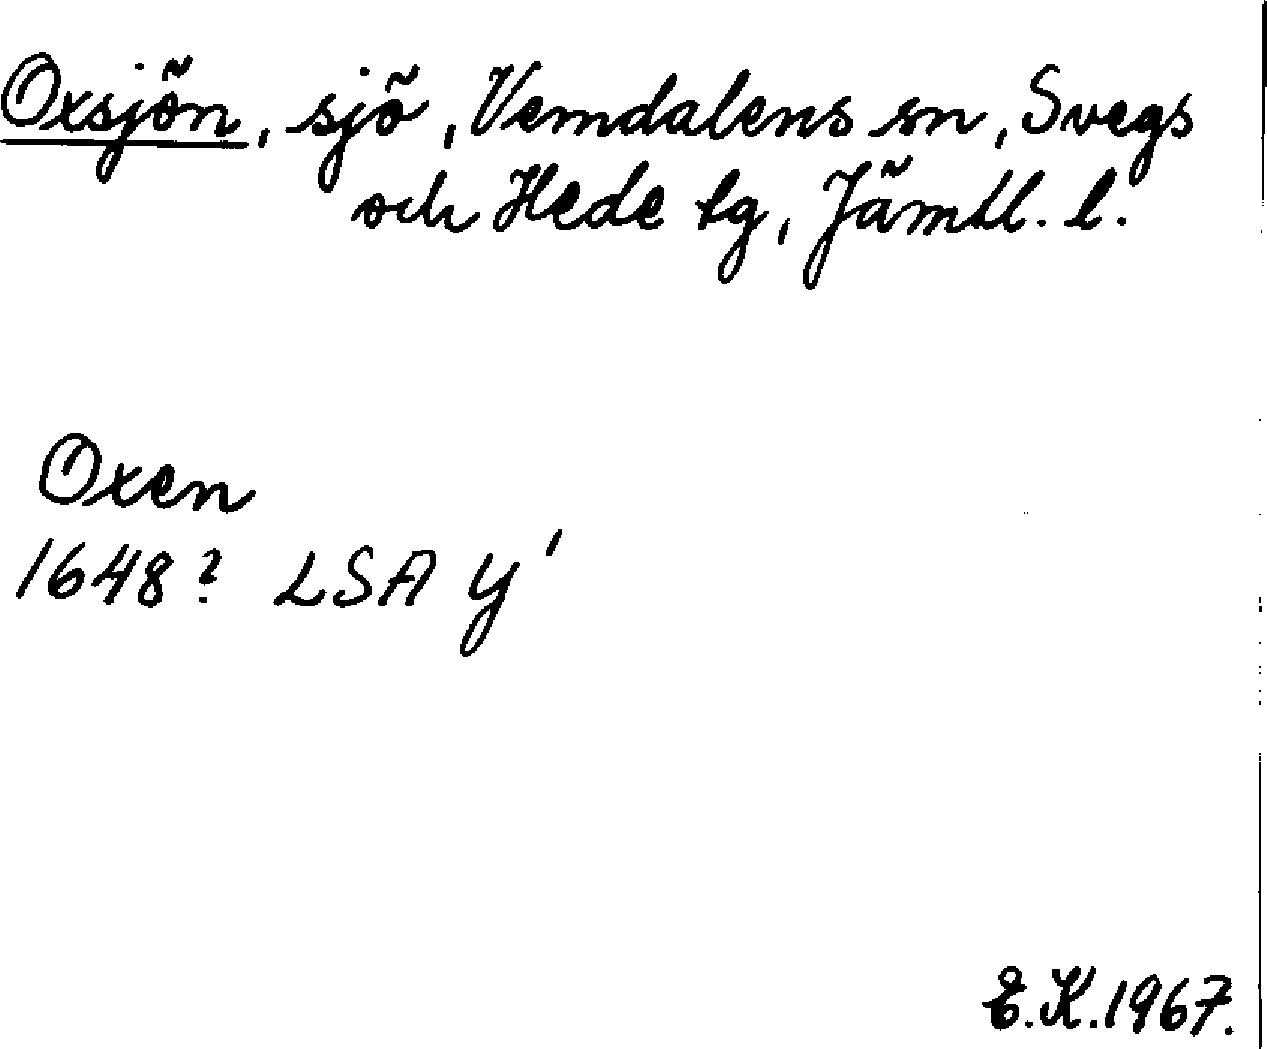 Oxsjön, sjö, Vemdalens sn, Svegs
och Hede tg, Jämtl. l.
Oxen
1648? LSA Y'
E.K. 1967.